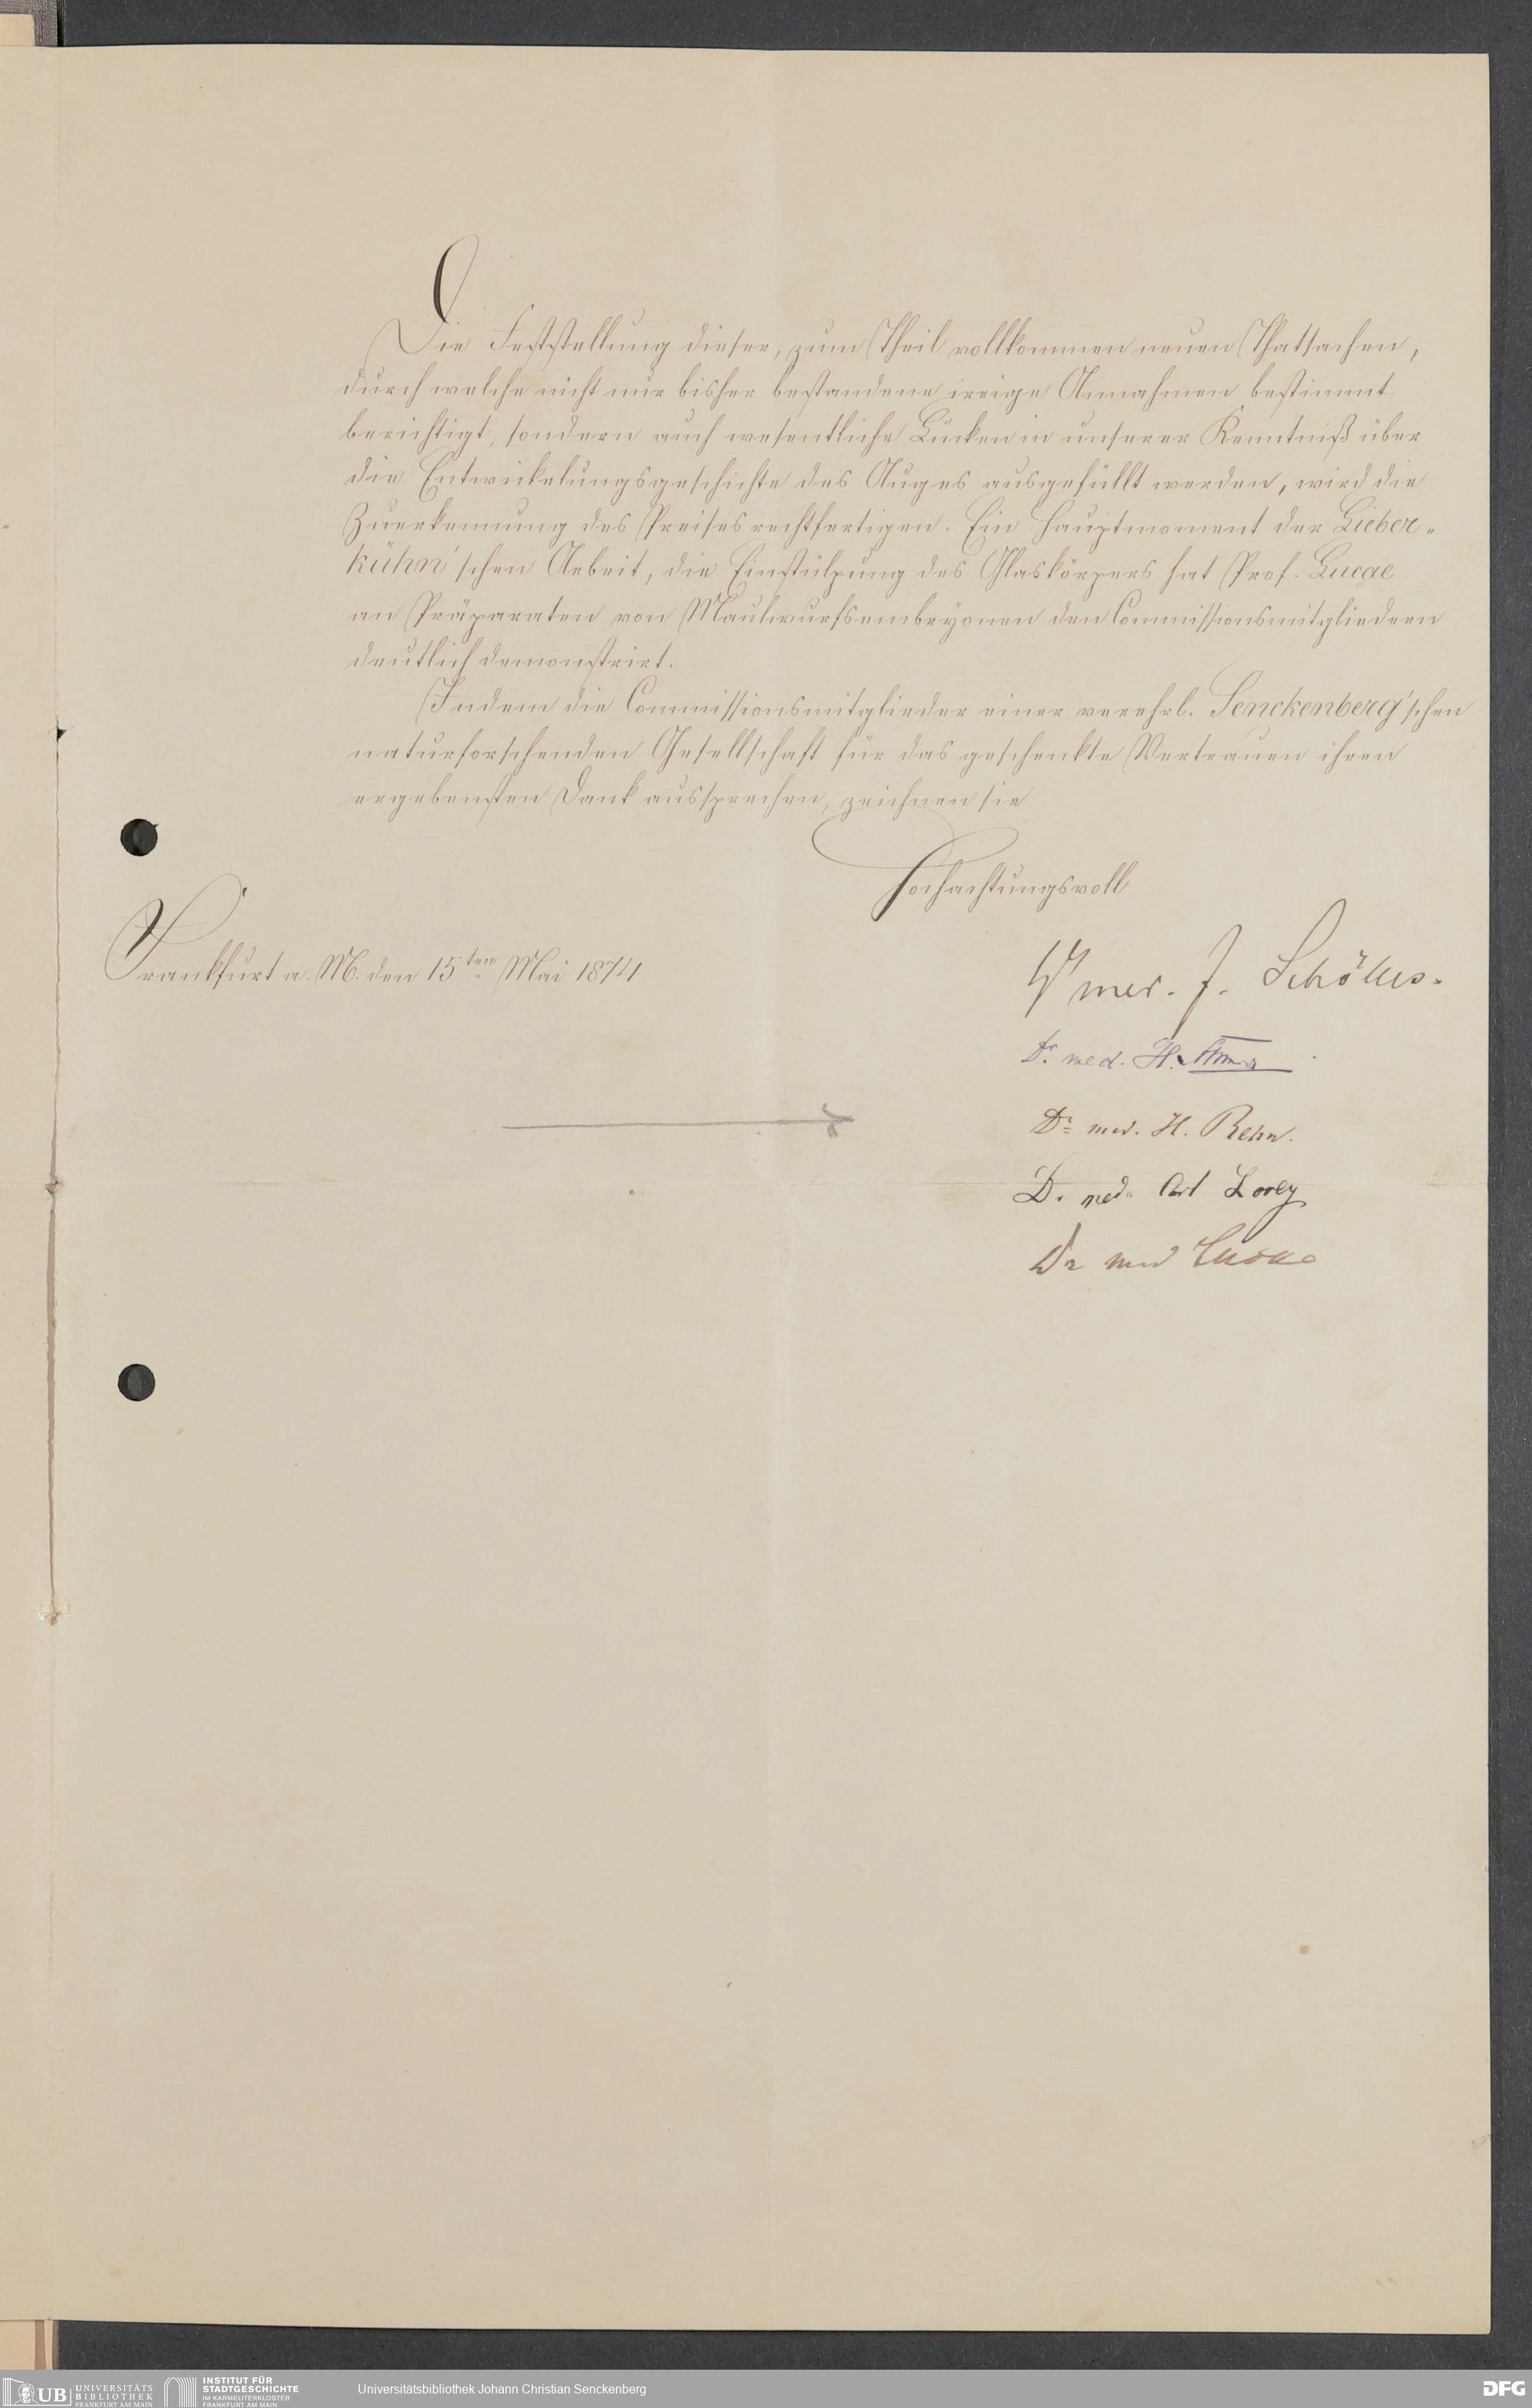 Die Feststellung dieser, zum Theil vollkommen neuen Thatsachen,
durch welche nicht nur bisher bestandene irrige Annahmen bestimmt
berichtigt, sondern auch wesentliche Lücken in unserer Kenntniß über
die Entwickelungsgeschichte des Auges ausgefüllt werden, wird die
Zuerkennung des Preises rechtfertigen. Ein Hauptmoment der Lieber-
kühn'schen Arbeit, die Einstülpung des Glaskörpers hat Prof. Lucae
an Präparaten von Maulwurfsembryonen den Commissionsmitgliedern
deutlich demonstrirt.
Indem die Commissionsmitglieder einer verehrl. Senckenberg'schen
naturforschenden Gesellschaft für das geschenkte Vertrauen ihren
ergebensten Dank aussprechen, zeichnen sie
Hochachtungsvoll
Frankfurt a. M. den 15ten Mai 1874
Dr med. J. Schölles.
Dr. med. H.
Dr med. H. Rehn.
Dr. med. Carl Lorey
Dr med Lucae
UB UNIVERSITÄTS
BIBLIOTHEK
FRANKFURT AM MAIN
INSTITUT FÜR
STADTGESCHICHTE
IM KARMELITERKLOSTER
FRANKFURT AM MAIN
Universitätsbibliothek Johann Christian Senckenberg
DFG